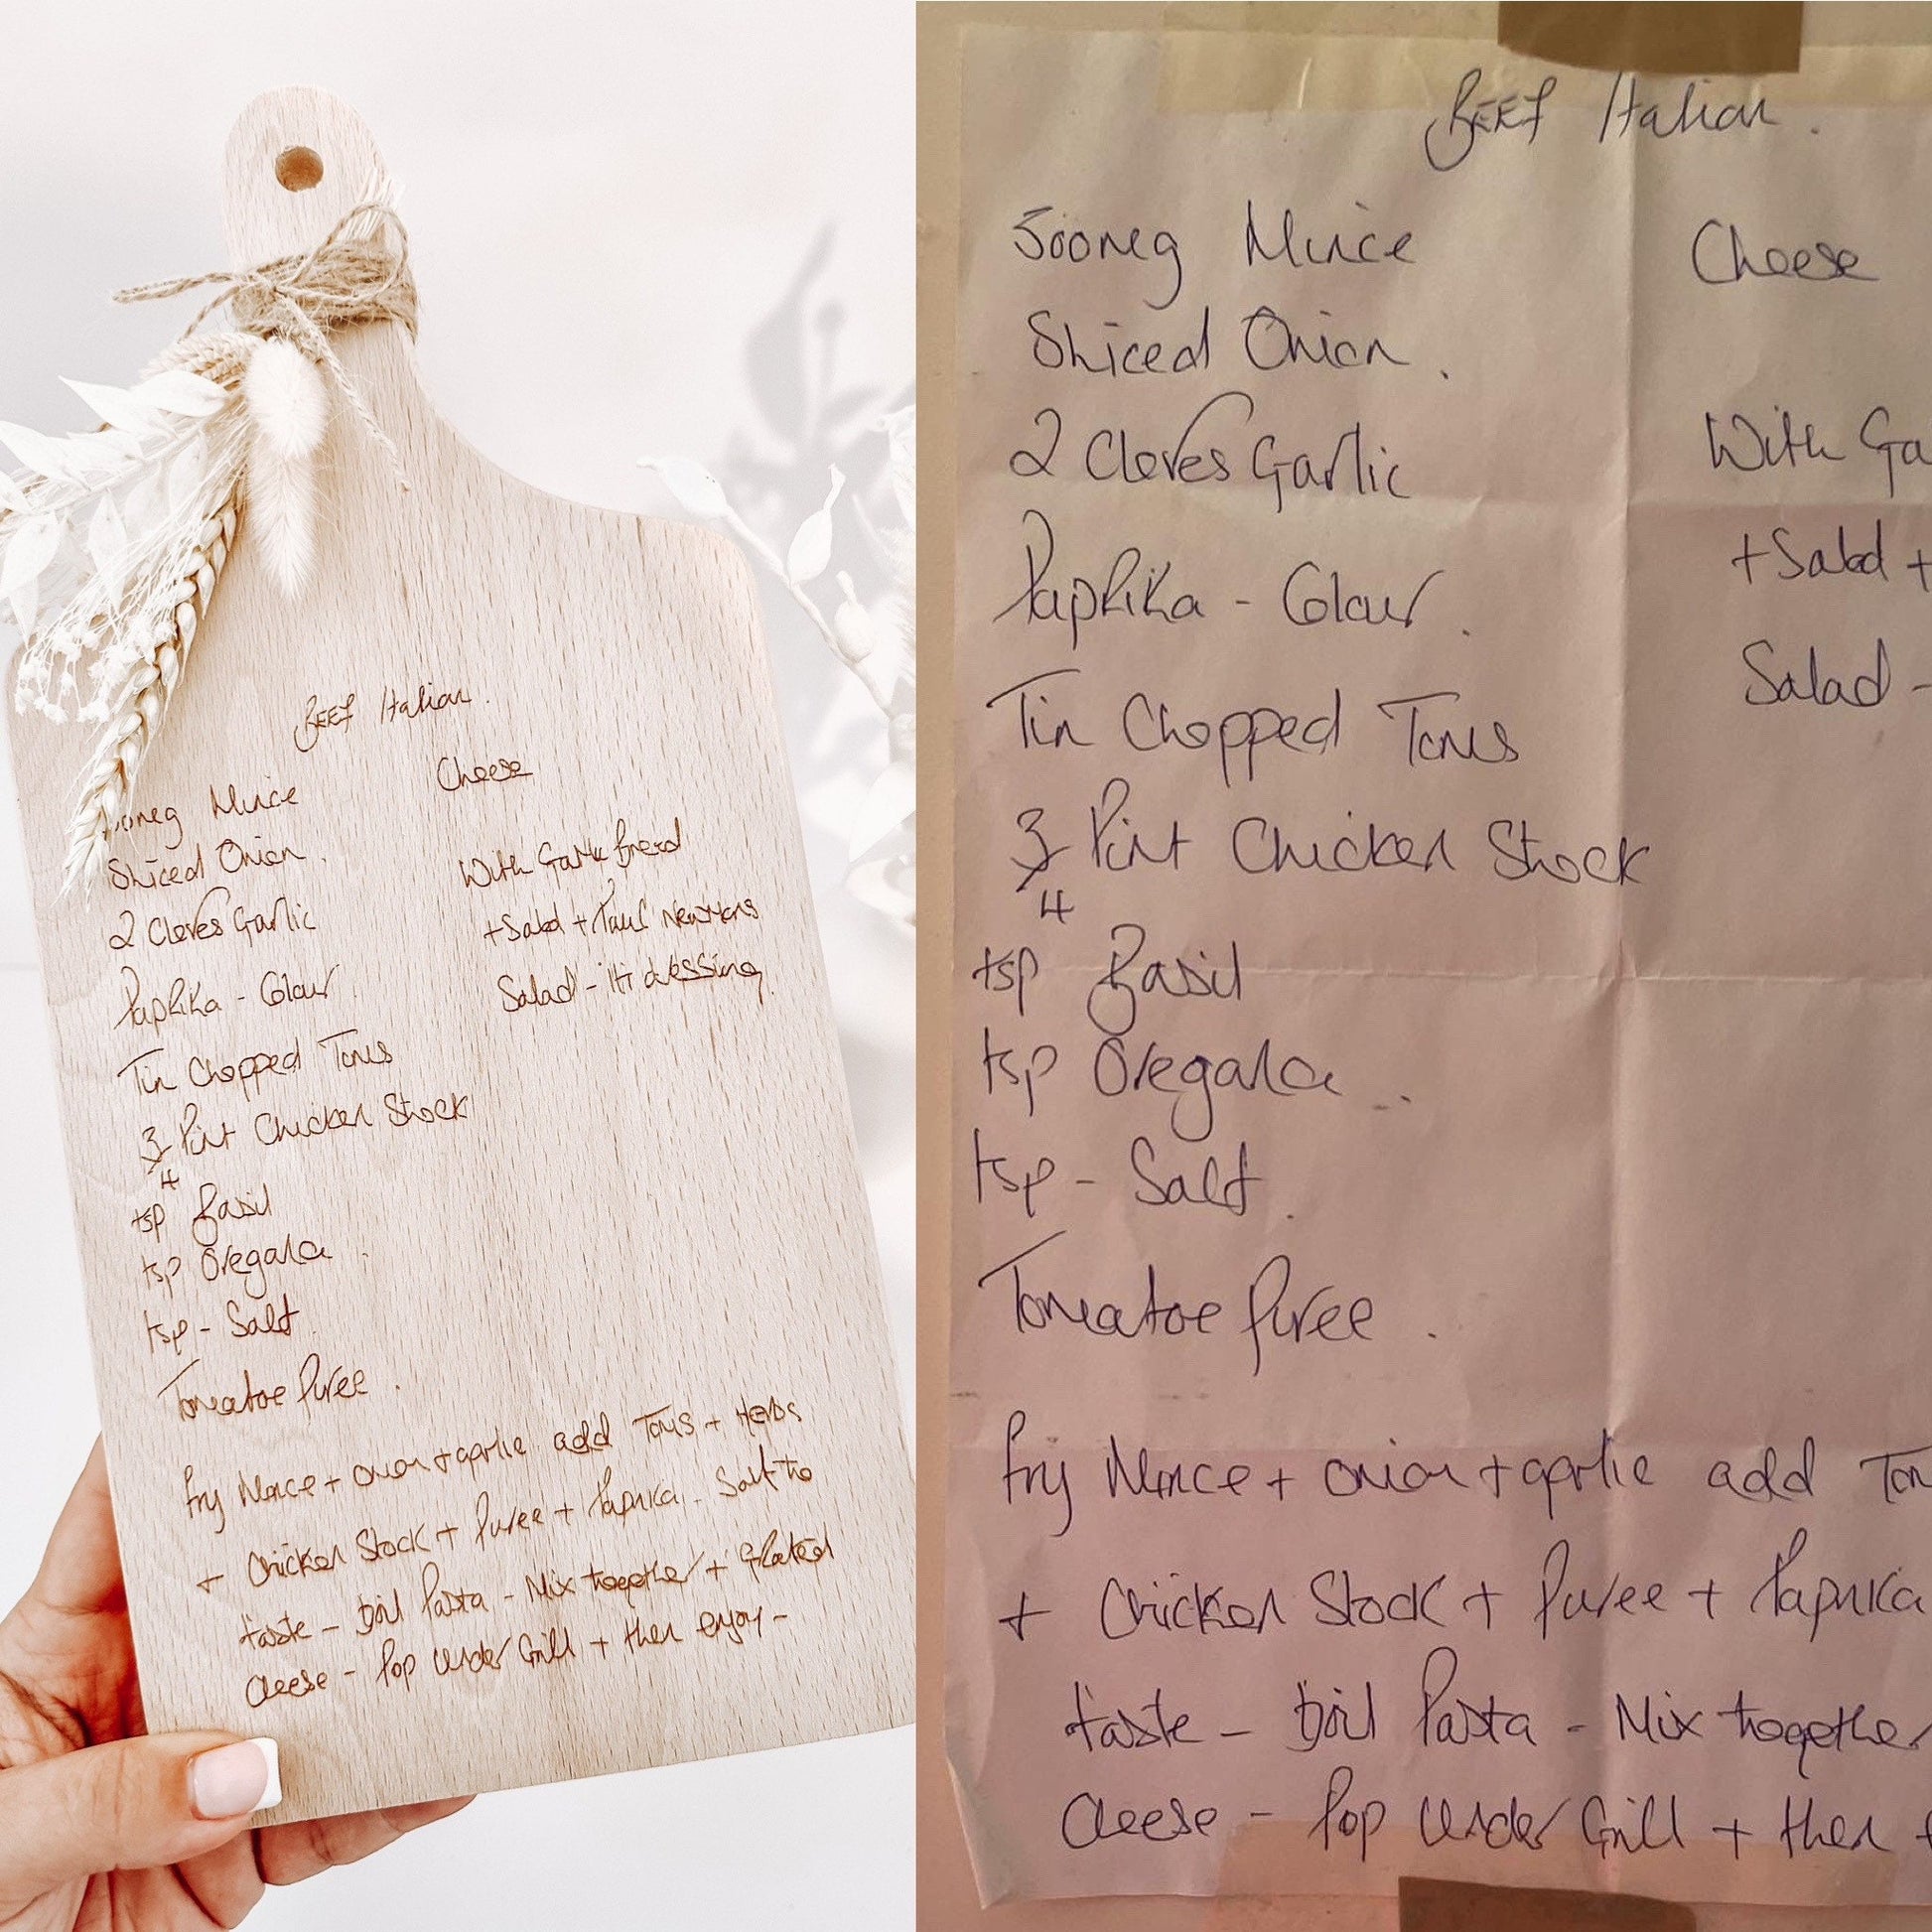 BEEF Italian.
Cheese
Mince
Sliced Onion.
With Garlic Bread
2 Cloves Garlic
+ Salad + Paul Newmans
Paprika - Colour.
Salad - iti dressing.
Tin Chopped Toms
3/4 Pint Chicken Stock
tsp Basil
tsp Oregano.
tsp - Salt.
Tomatoe Puree.
Fry Mince + onion + garlic add Toms + Herbs
+ Chicken Stock + Puree + Paprika. Salt to
taste - Boil Pasta - Mix together + Grated
cheese - Pop Under Grill + then enjoy -
BEEF Italian.
500mg Mince
Cheese
Sliced Onion.
2 Cloves Garlic
With Ga
Paprika - Colour.
+ Salad +
Tin Chopped Toms
Salad -
3/4 Pint Chicken Stock
tsp Basil
tsp Oregano.
tsp - Salt.
Tomatoe Puree.
Fry Mince + onion + garlic add Tom
+ Chicken Stock + Puree + Paprika
taste - Boil Pasta - Mix together
cheese - Pop Under Grill + then